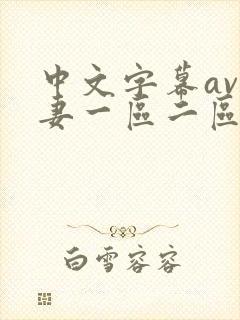 中文字幕av
妻一區二區
白雪容容